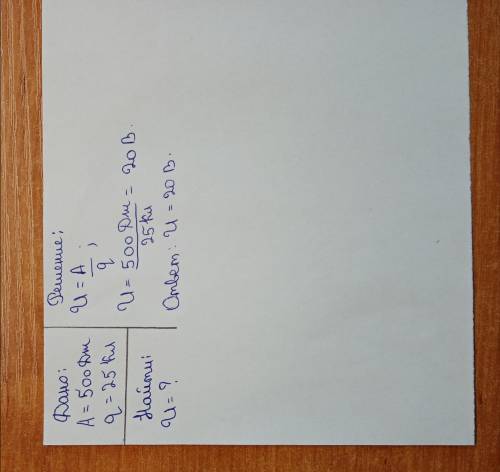 Дано:
A = 500 Дж
q = 25 Кл
Найти:
U = ?
Решение;
U = A/q ;
U = 500 Дж/25 Кл = 20 В.
Ответ: U = 20 В.